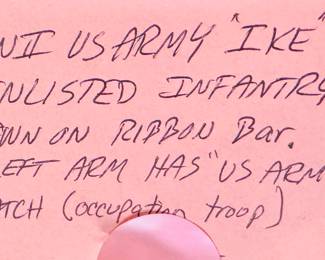 WII US ARMY "IKE"
NLISTED INFANTRY
WN ON RIBBON Bar.
EFT ARM HAS "US ARM
ATCH (occupation troop)